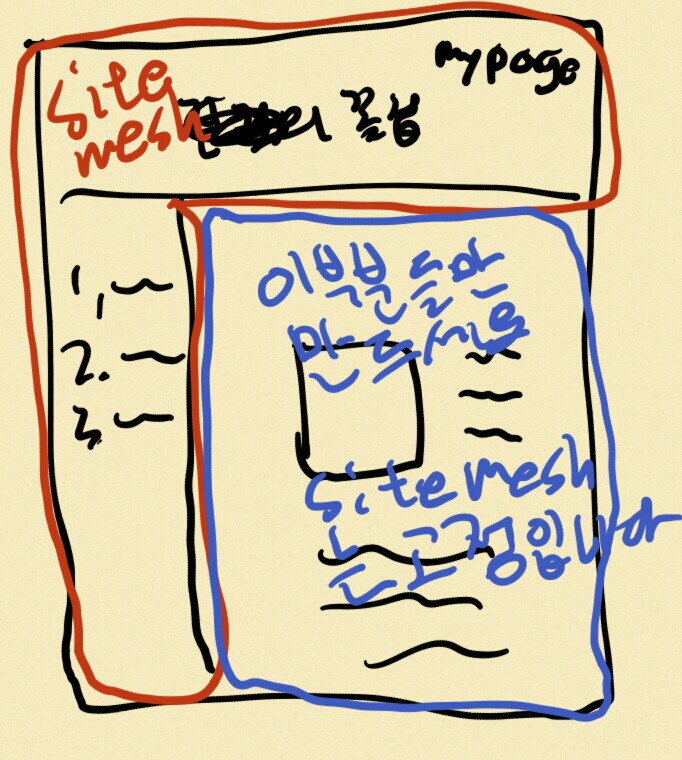 mypage
site
mesh
의 꿀팁
1,
2.
3
이부분들만
만드세요
sitemesh
는 고정입니다